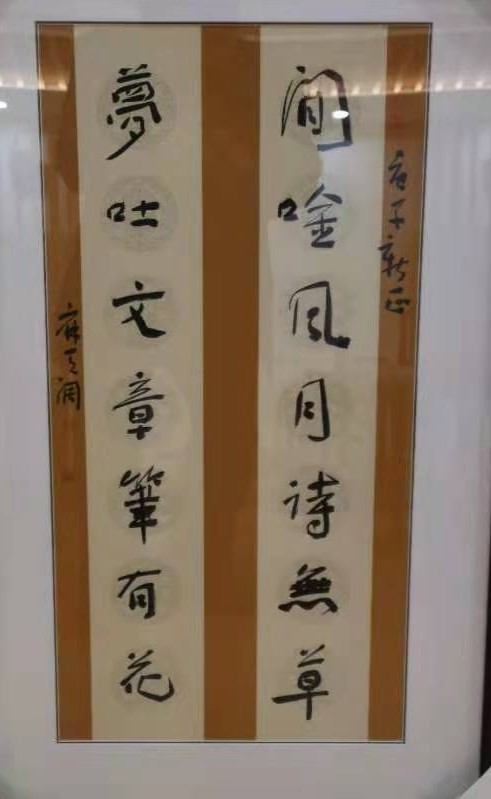 庚子新正
間唫風月詩無草
夢吐文章筆有花
麻天阔